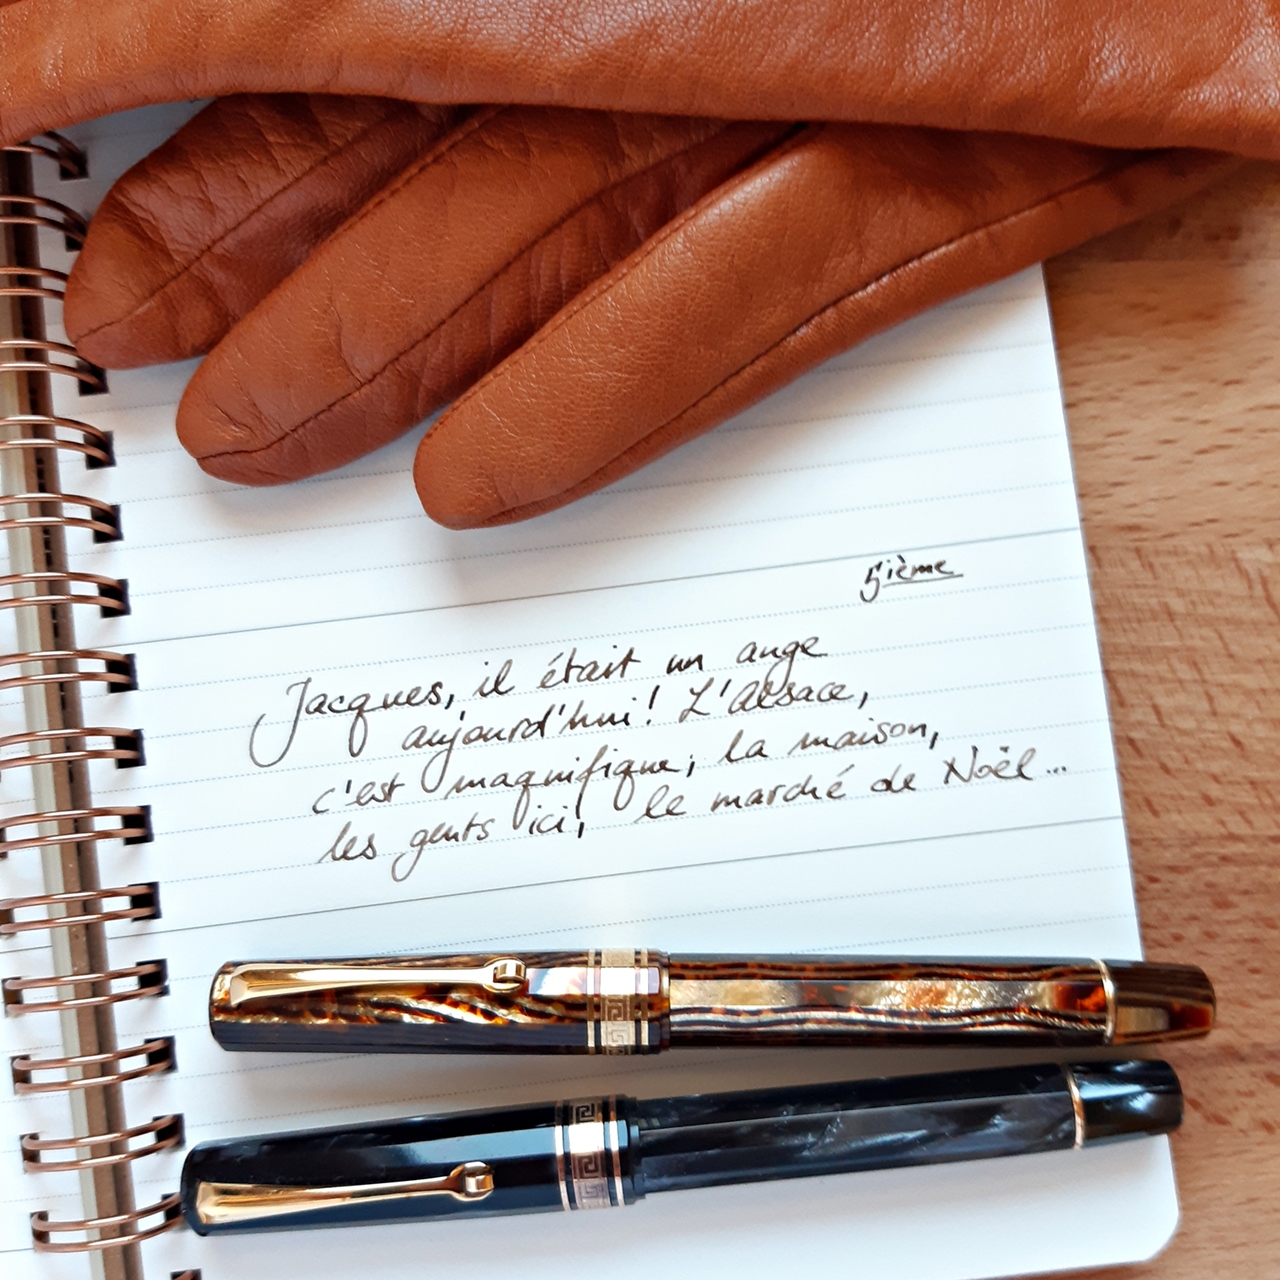 5ième
Jacques, il était un ange
aujourd'hui! L'Alsace,
c'est magnifique; la maison,
les gents ici, le marché de Noël...